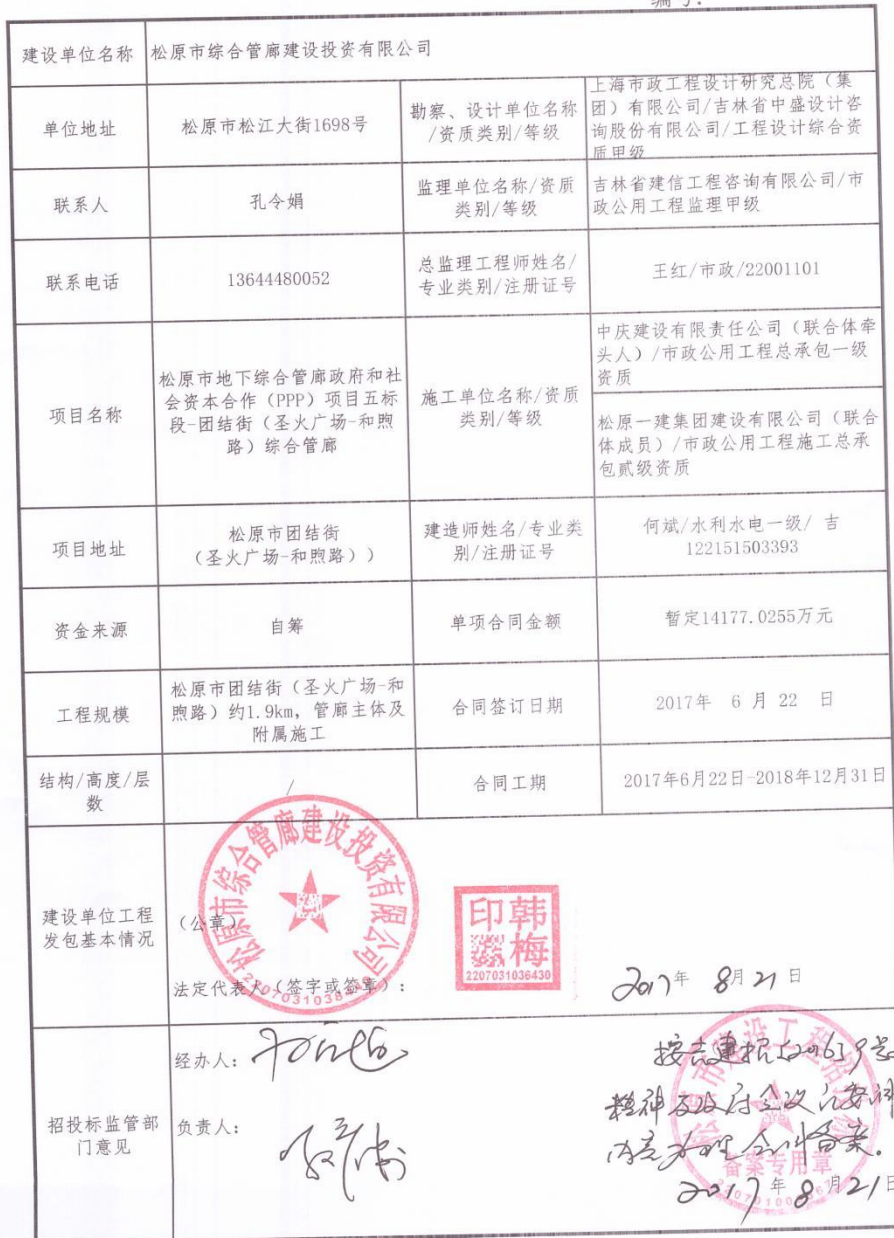 编号:
建设单位名称
松原市综合管廊建设投资有限公司
单位地址
松原市松江大街1698号
勘察、设计单位名称
/资质类别/等级
上海市政工程设计研究总院（集
团）有限公司/吉林省中盛设计咨
询股份有限公司/工程设计综合资
质甲级
联系人
孔令娟
监理单位名称/资质
类别/等级
吉林省建信工程咨询有限公司/市
政公用工程监理甲级
联系电话
13644480052
总监理工程师姓名/
专业类别/注册证号
王红/市政/22001101
项目名称
松原市地下综合管廊政府和社
会资本合作（PPP）项目五标
段-团结街（圣火广场-和煦
路）综合管廊
施工单位名称/资质
类别/等级
中庆建设有限责任公司（联合体牵
头人）/市政公用工程总承包一级
资质
松原一建集团建设有限公司（联合
体成员）/市政公用工程施工总承
包贰级资质
项目地址
松原市团结街
（圣火广场-和煦路））
建造师姓名/专业类
别/注册证号
何斌/水利水电一级/ 吉
122151503393
资金来源
自筹
单项合同金额
暂定14177.0255万元
工程规模
松原市团结街（圣火广场-和
煦路）约1.9km，管廊主体及
附属施工
合同签订日期
2017年 6 月 22 日
结构/高度/层
数
/
合同工期
2017年6月22日-2018年12月31日
建设单位工程
发包基本情况
松原市综合管廊建设投资有限公司
（公章）
印韩
梅
2207031036430
法定代表人（签字或签章）:
2017年 8月21日
招投标监管部
门意见
经办人:
负责人:
内容办理合同备案.
备案专用章
2017年8月21日